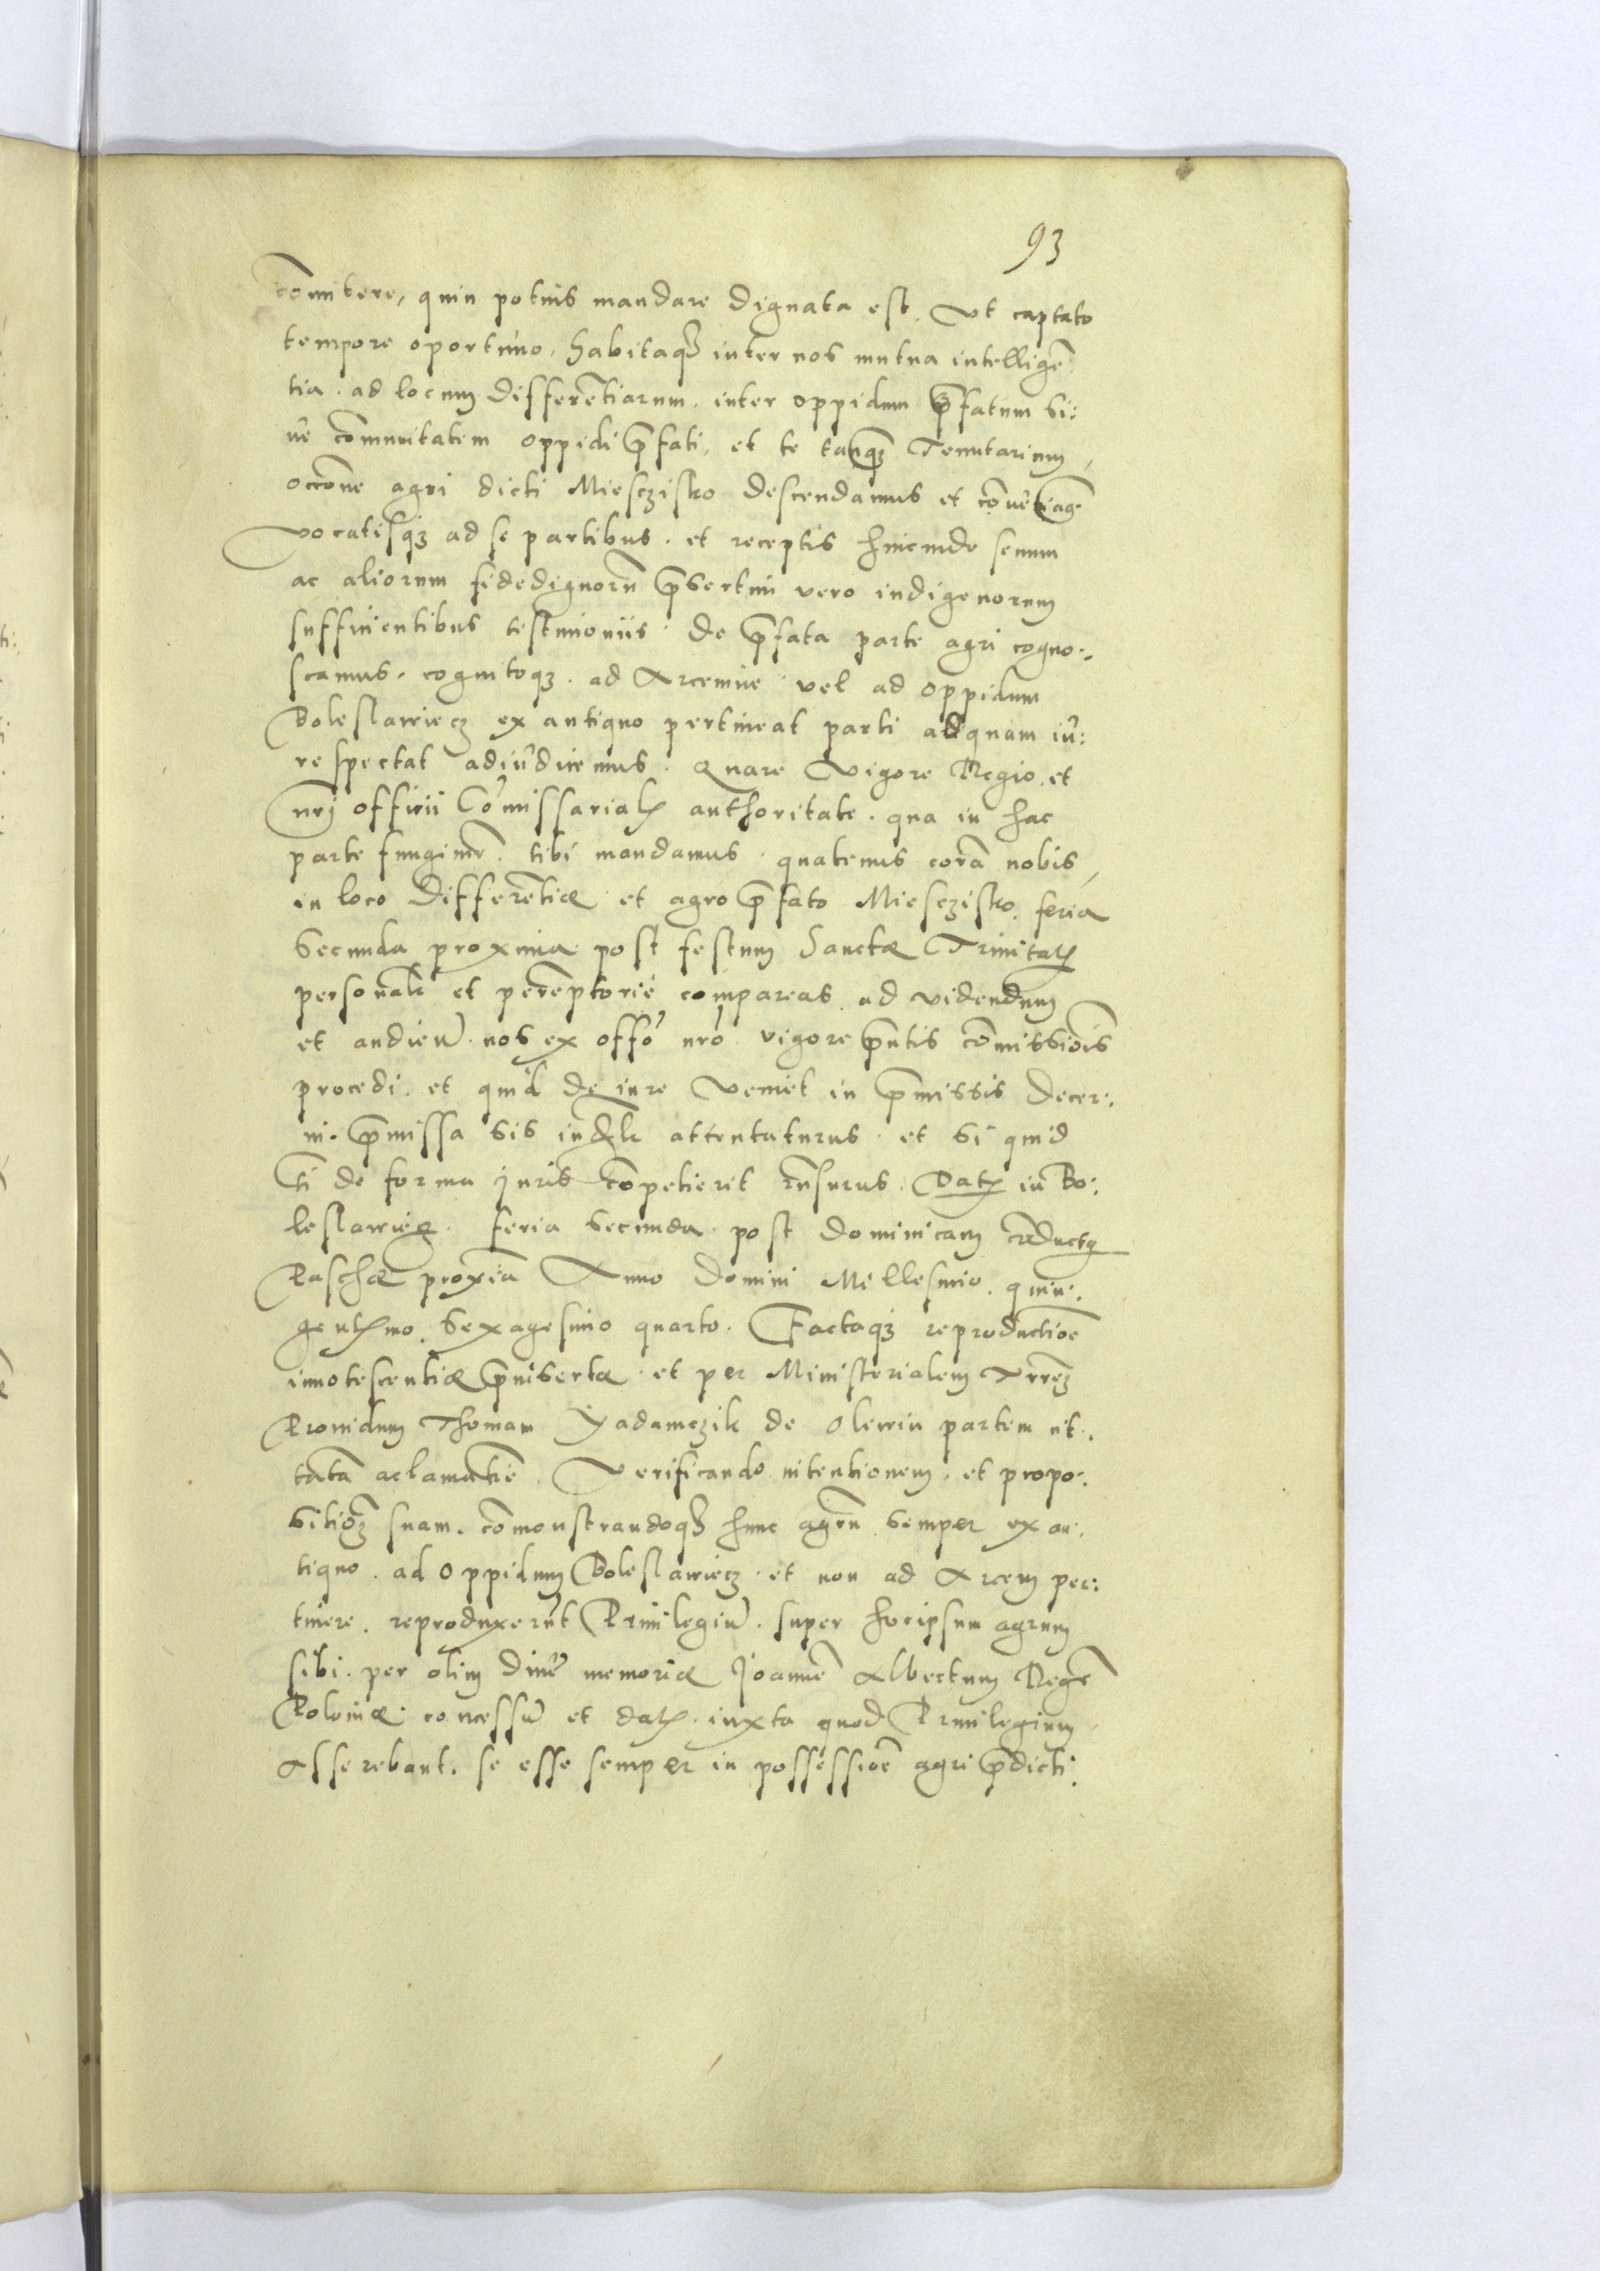 93
com̄itere, quin potius mandare dignata est. Vt captato
tempore oportuno, habitaq₃ inter nos mutua intelligē
tia. ad locum differētiarum. inter oppidum p̄fatum si:
ue com̄unitatem oppidi p̄fati, et te tanq₃ Tenutarium,
occōne agri dicti Miesczisko descendamus et
vocatisq₃ ad se partibus. et receptis hincinde senum
ac aliorum fidedignorū p̄sertim vero indigenorum
sufficientibus testimoniis. de p̄fata parte agri cogno:
scamus. cognitoq₃. ad Arcemne vel ad oppidum
Boleslawiecz ex antiquo pertineat parti ad quam iu:
re spectat adiudicemus. Quare Vigore Regio et
nr̄i officii Com̄issarial authoritate. qua in hac
parte fungimr̄. tibi mandamus. quatenus corā nobis,
in loco differētiæ et agro p̄fato Miesczisko. feria
secunda proxima post festum Sanctæ Trinitat
personalr̄ et perēptorie compareas ad videndum
et audiend̄. nos ex offō nrō vigore p̄ntis com̄issiōis
procedi. et quid de iure veniet in p̄missis decer:
ni. p̄missa sis attentaturus. et si quid
t̄i de forma juris cōpetierit rn̄surus. Dat in Bo:
leslawiecz. feria secunda post dominicam cōductꝫ
Paschæ proxīa Anno Domini Millesimo. quin:
gentmo. sexagesimo quarto. Factaq₃ reproductiōe
innotescentiæ p̄insertæ et per Ministerialem
Prouidum Thomam Yadamczik de Olewin partem
aclamatiē. Verificando intentionem. et propo:
sitiōꝫ suam. cōmonstrandoq₃ hunc agrū semper ex an:
tiquo. ad oppidum Boleslawiecz et non ad Arcem per:
tinere. reproduxerūt Priuilegiū. super hocipsum agrum
sibi. per olim diuæ memoriæ Joannē Albertum Regē
Poloniæ concessū et dat. iuxta quod Priuilegium,
Asserebant. se esse semper in possessiōe agri p̄dicti.